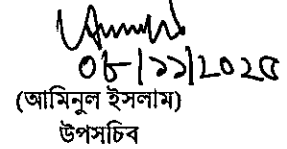 ০৮/১১/২০২৫
(আমিনুল ইসলাম)
উপসচিব